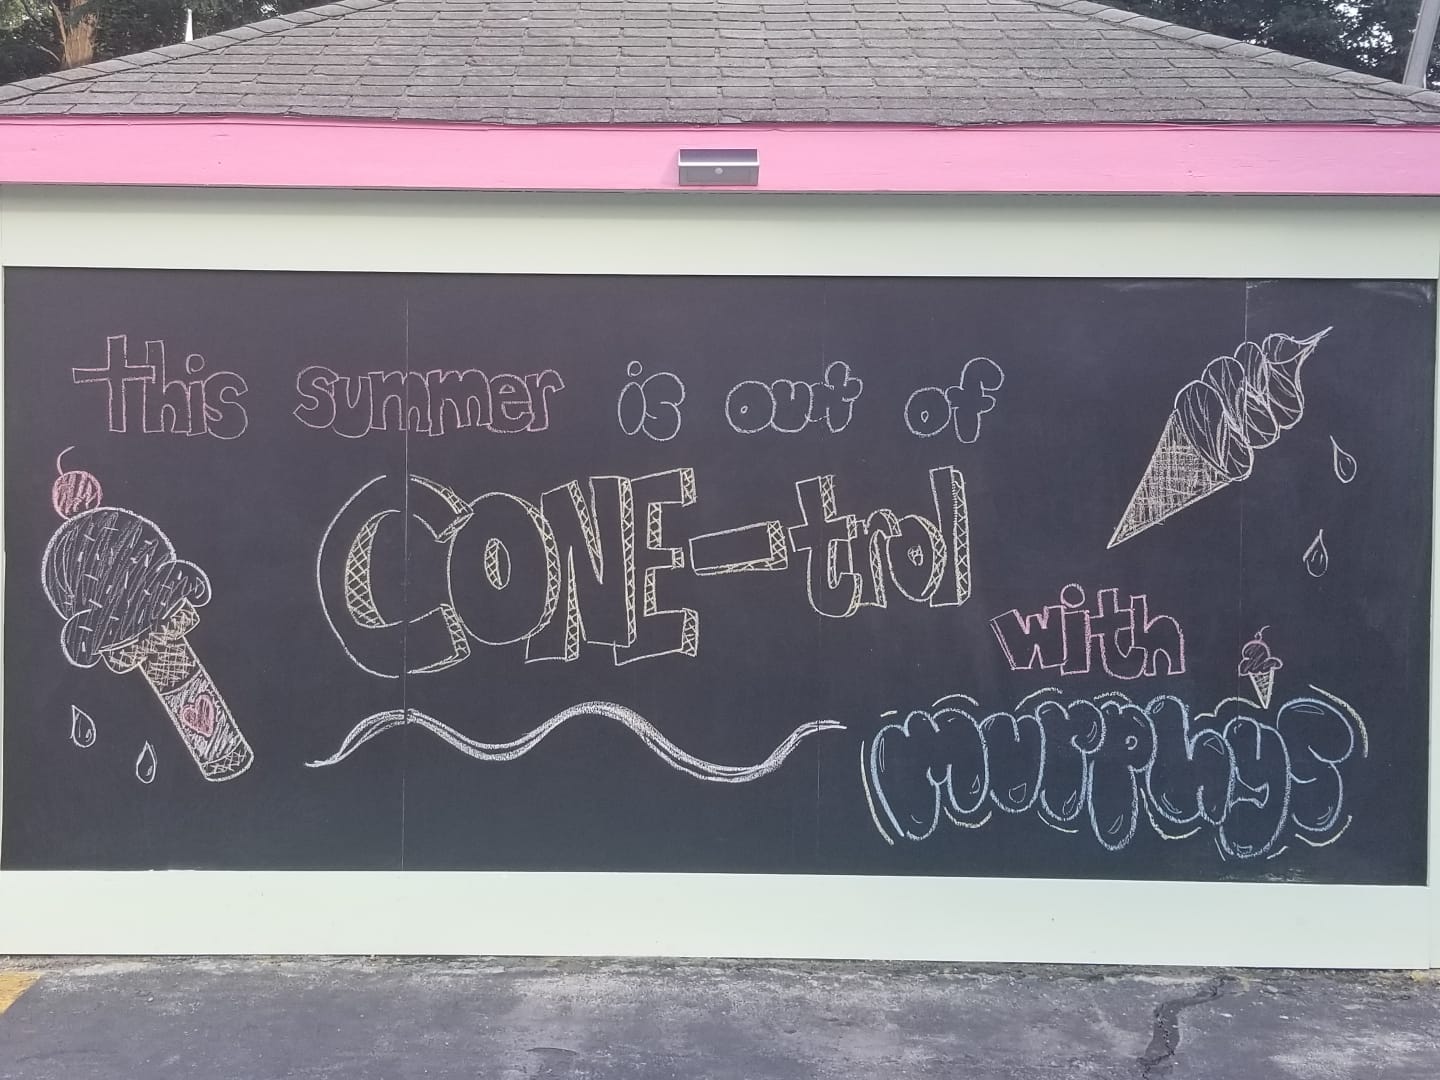 this summer is out of
CONE-trol
with
murphys